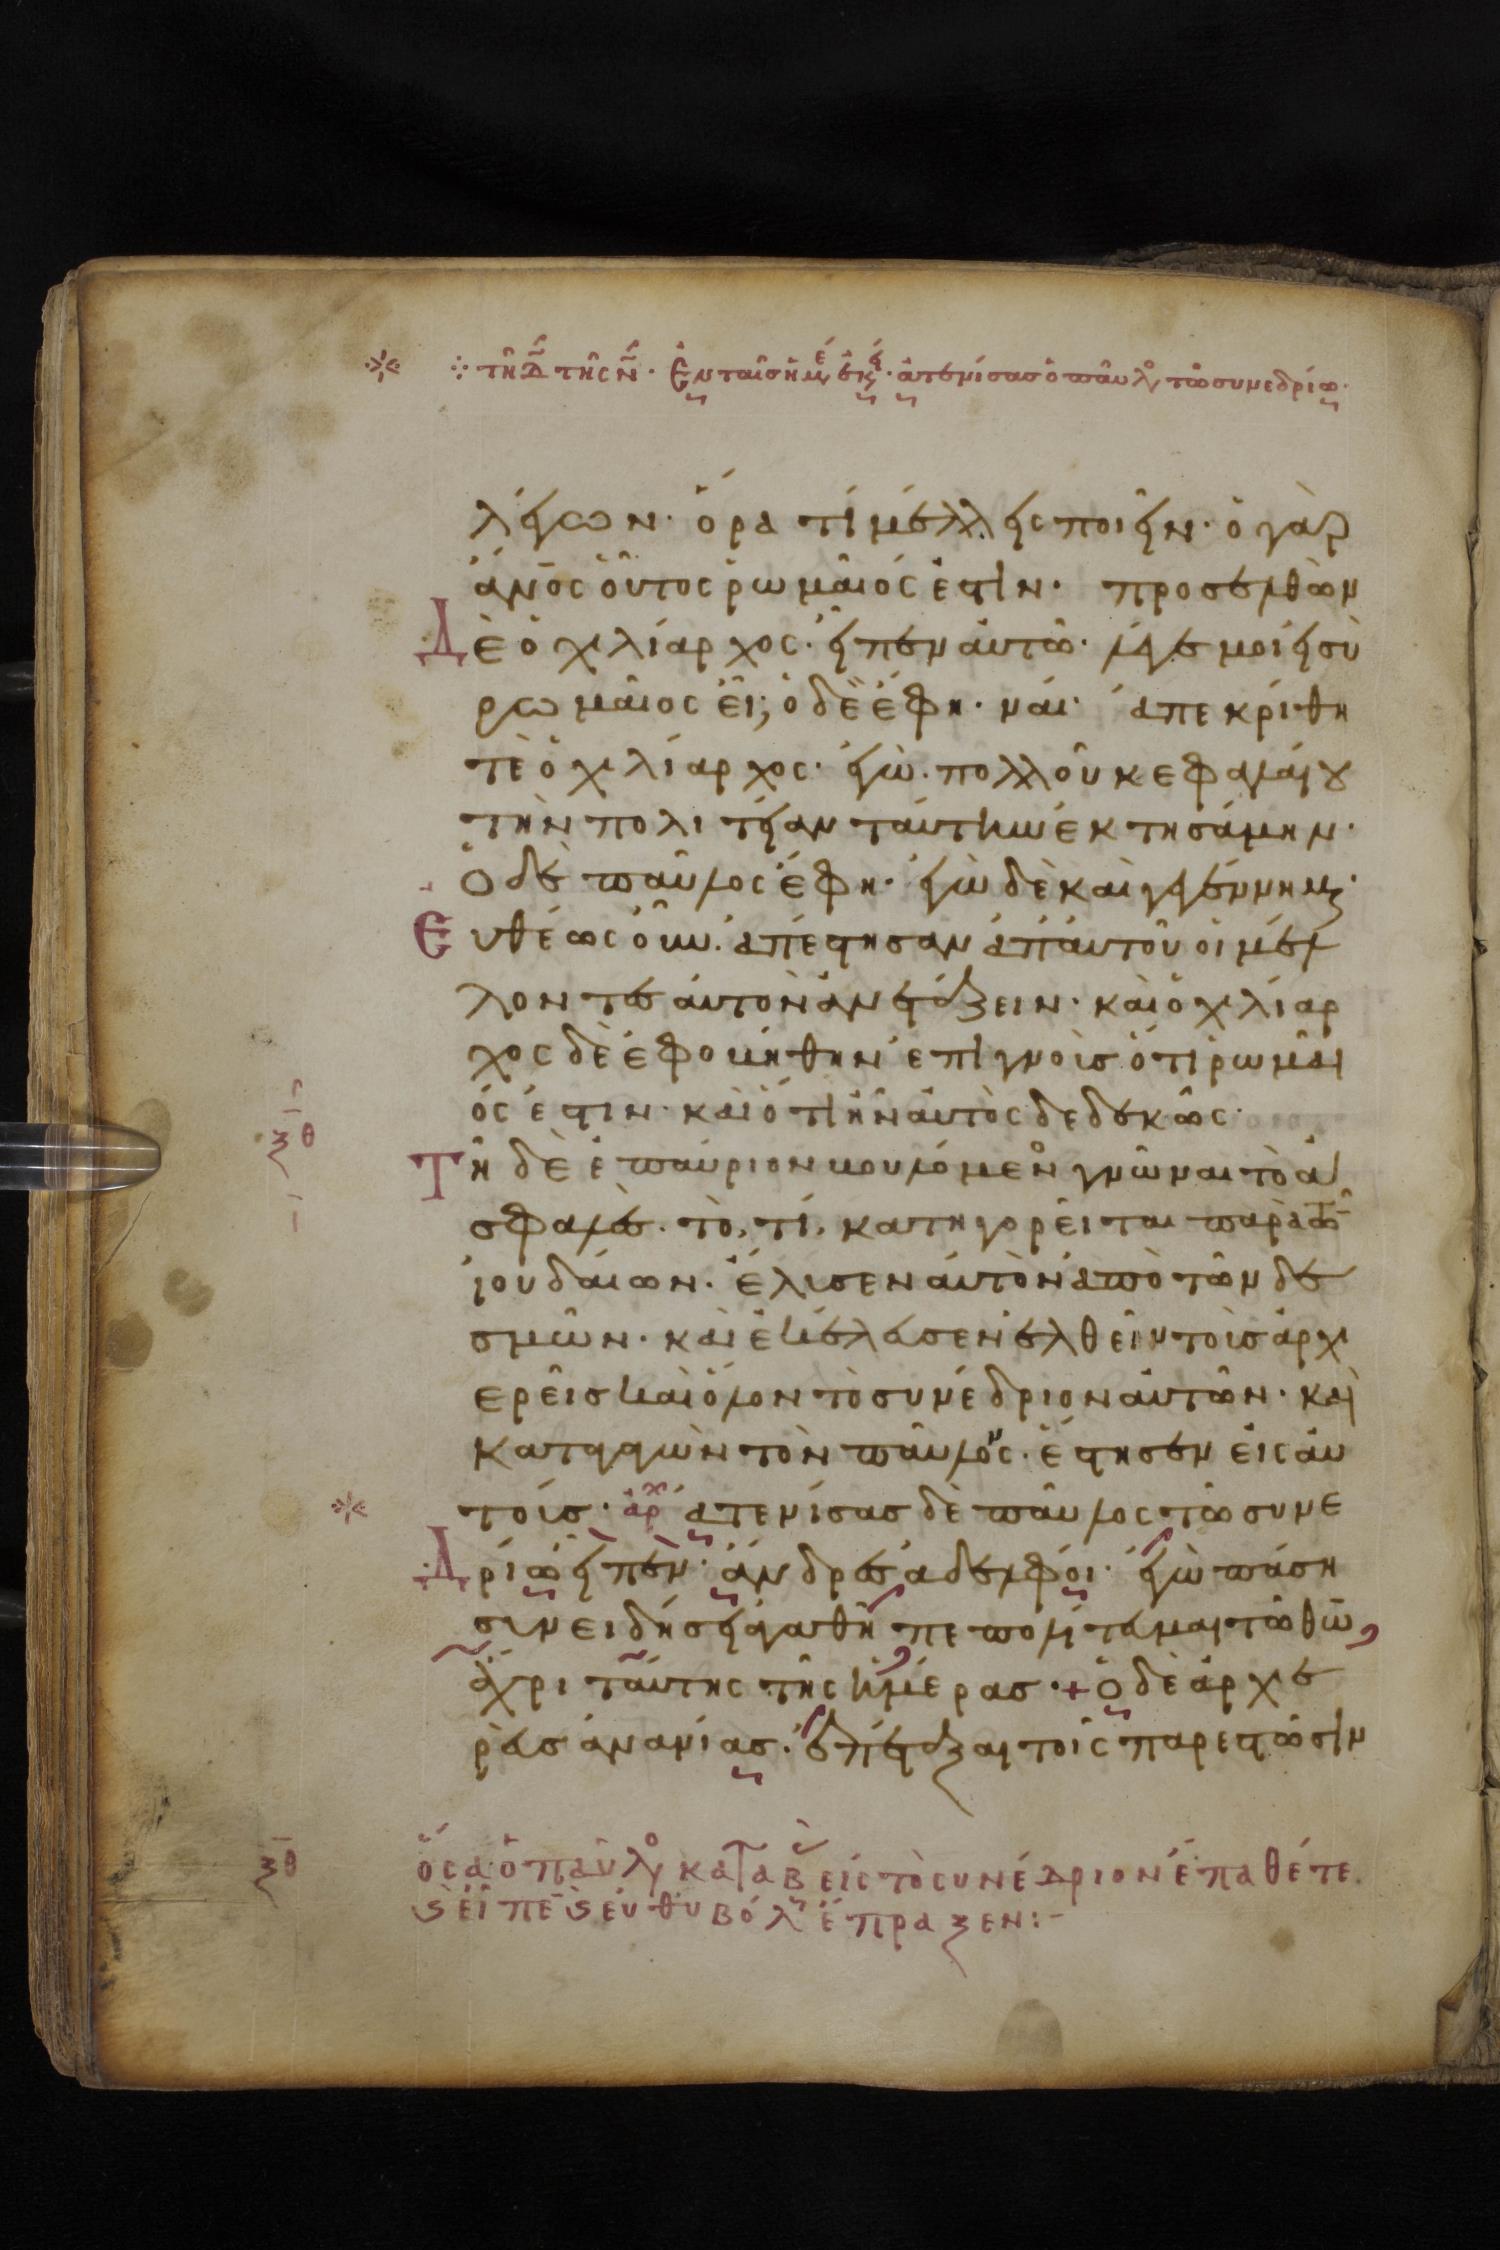 τῆ Δ τῆς Ν̄. Ἐν ταῖς ἡμ ἐκ. ἀτενίσας ὁ παῦλ τῶ συνεδρίω.
λέγων. ὅρα τί μέλλεις ποιεῖν. ὁ γὰρ
ἄν̄ος οὗτος ῥωμαῖός ἐστιν. προσελθὼν
Δὲ ὁ χιλίαρχος. εἶπεν αὐτῶ. λέγε μοι εἰ σὺ
ρωμαῖος εἶ; ὁ δὲ ἔφη. ναί. ἀπεκρίθη
τὲ ὁ χιλίαρχος. ἐγὼ. πολλοῦ κεφαλαίου
τὴν πολιτείαν ταύτην ἐκτησάμην.
Ὁ δὲ παῦλος ἔφη. ἐγὼ δὲ καὶ γεγέννημαι.
Ευθέως οὖν. ἀπέστησαν ἀπ' αὐτοῦ οἱ μέλ
λοντες αὐτὸν ἀνετάζειν. καὶ ὁ χιλίαρ
χος δὲ ἐφοβήθην ἐπιγνοὶς ὅτι ῥωμαῖ
ός ἐστιν. καὶ ὅτι ἦν αὐτὸς δεδεκῶς.
Τῆ δὲ ἐπαύριον βουλόμεν γνῶναι τὸ ἀ
σφαλὲς. τὸ, τί, κατηγορεῖται παρὰ τῶ
ϊουδαίων. ἔλισεν αὐτὸν ἀπὸ τῶν δε
σμῶν. καὶ ἐκέλασεν ἐλθεῖν τοῖς ἀρχι
ερεῖς καὶ ὅλον τὸ συνέδριον αὐτῶν. καὶ
καταγαγὼν τὸν παῦλος. ἔστησεν εἰς αὐ
τοίς. ἀρχ ἀτενίσας δὲ παῦλος τῶ συνε
Δρίω εἶπεν. ἄνδρες ἀδελφοί. ἐγὼ πάση
συνειδήσει ἀγαθῆ πεπολίτευμαι τῶ θῶ
ἄχρι ταύτης τῆς ἡμέρας. + ὁ δὲ ἀρχιε
ρὲας ἀνανίας. ἐπέταξαι τοῖς παρεστῶσιν
ξθ
ξθ
ὅσα ὁ παῦλ καταβ εἰς τὸ συνέΔριον ἔπαθέ τε
ϛ εἶπε ϛ εὐθυβόλ ἔπραξεν:-